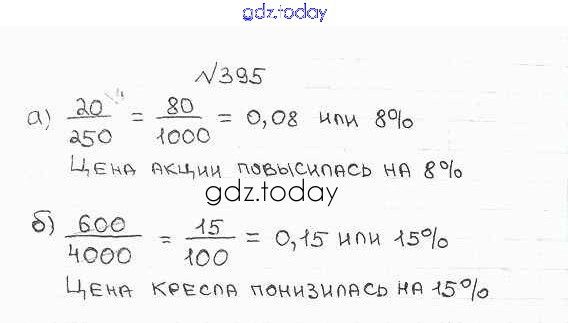 gdz.today
№395
а) 20/250 = 80/1000 = 0,08 или 8%
Цена акции повысилась на 8%
gdz.today
б) 600/4000 = 15/100 = 0,15 или 15%
Цена кресла понизилась на 15%